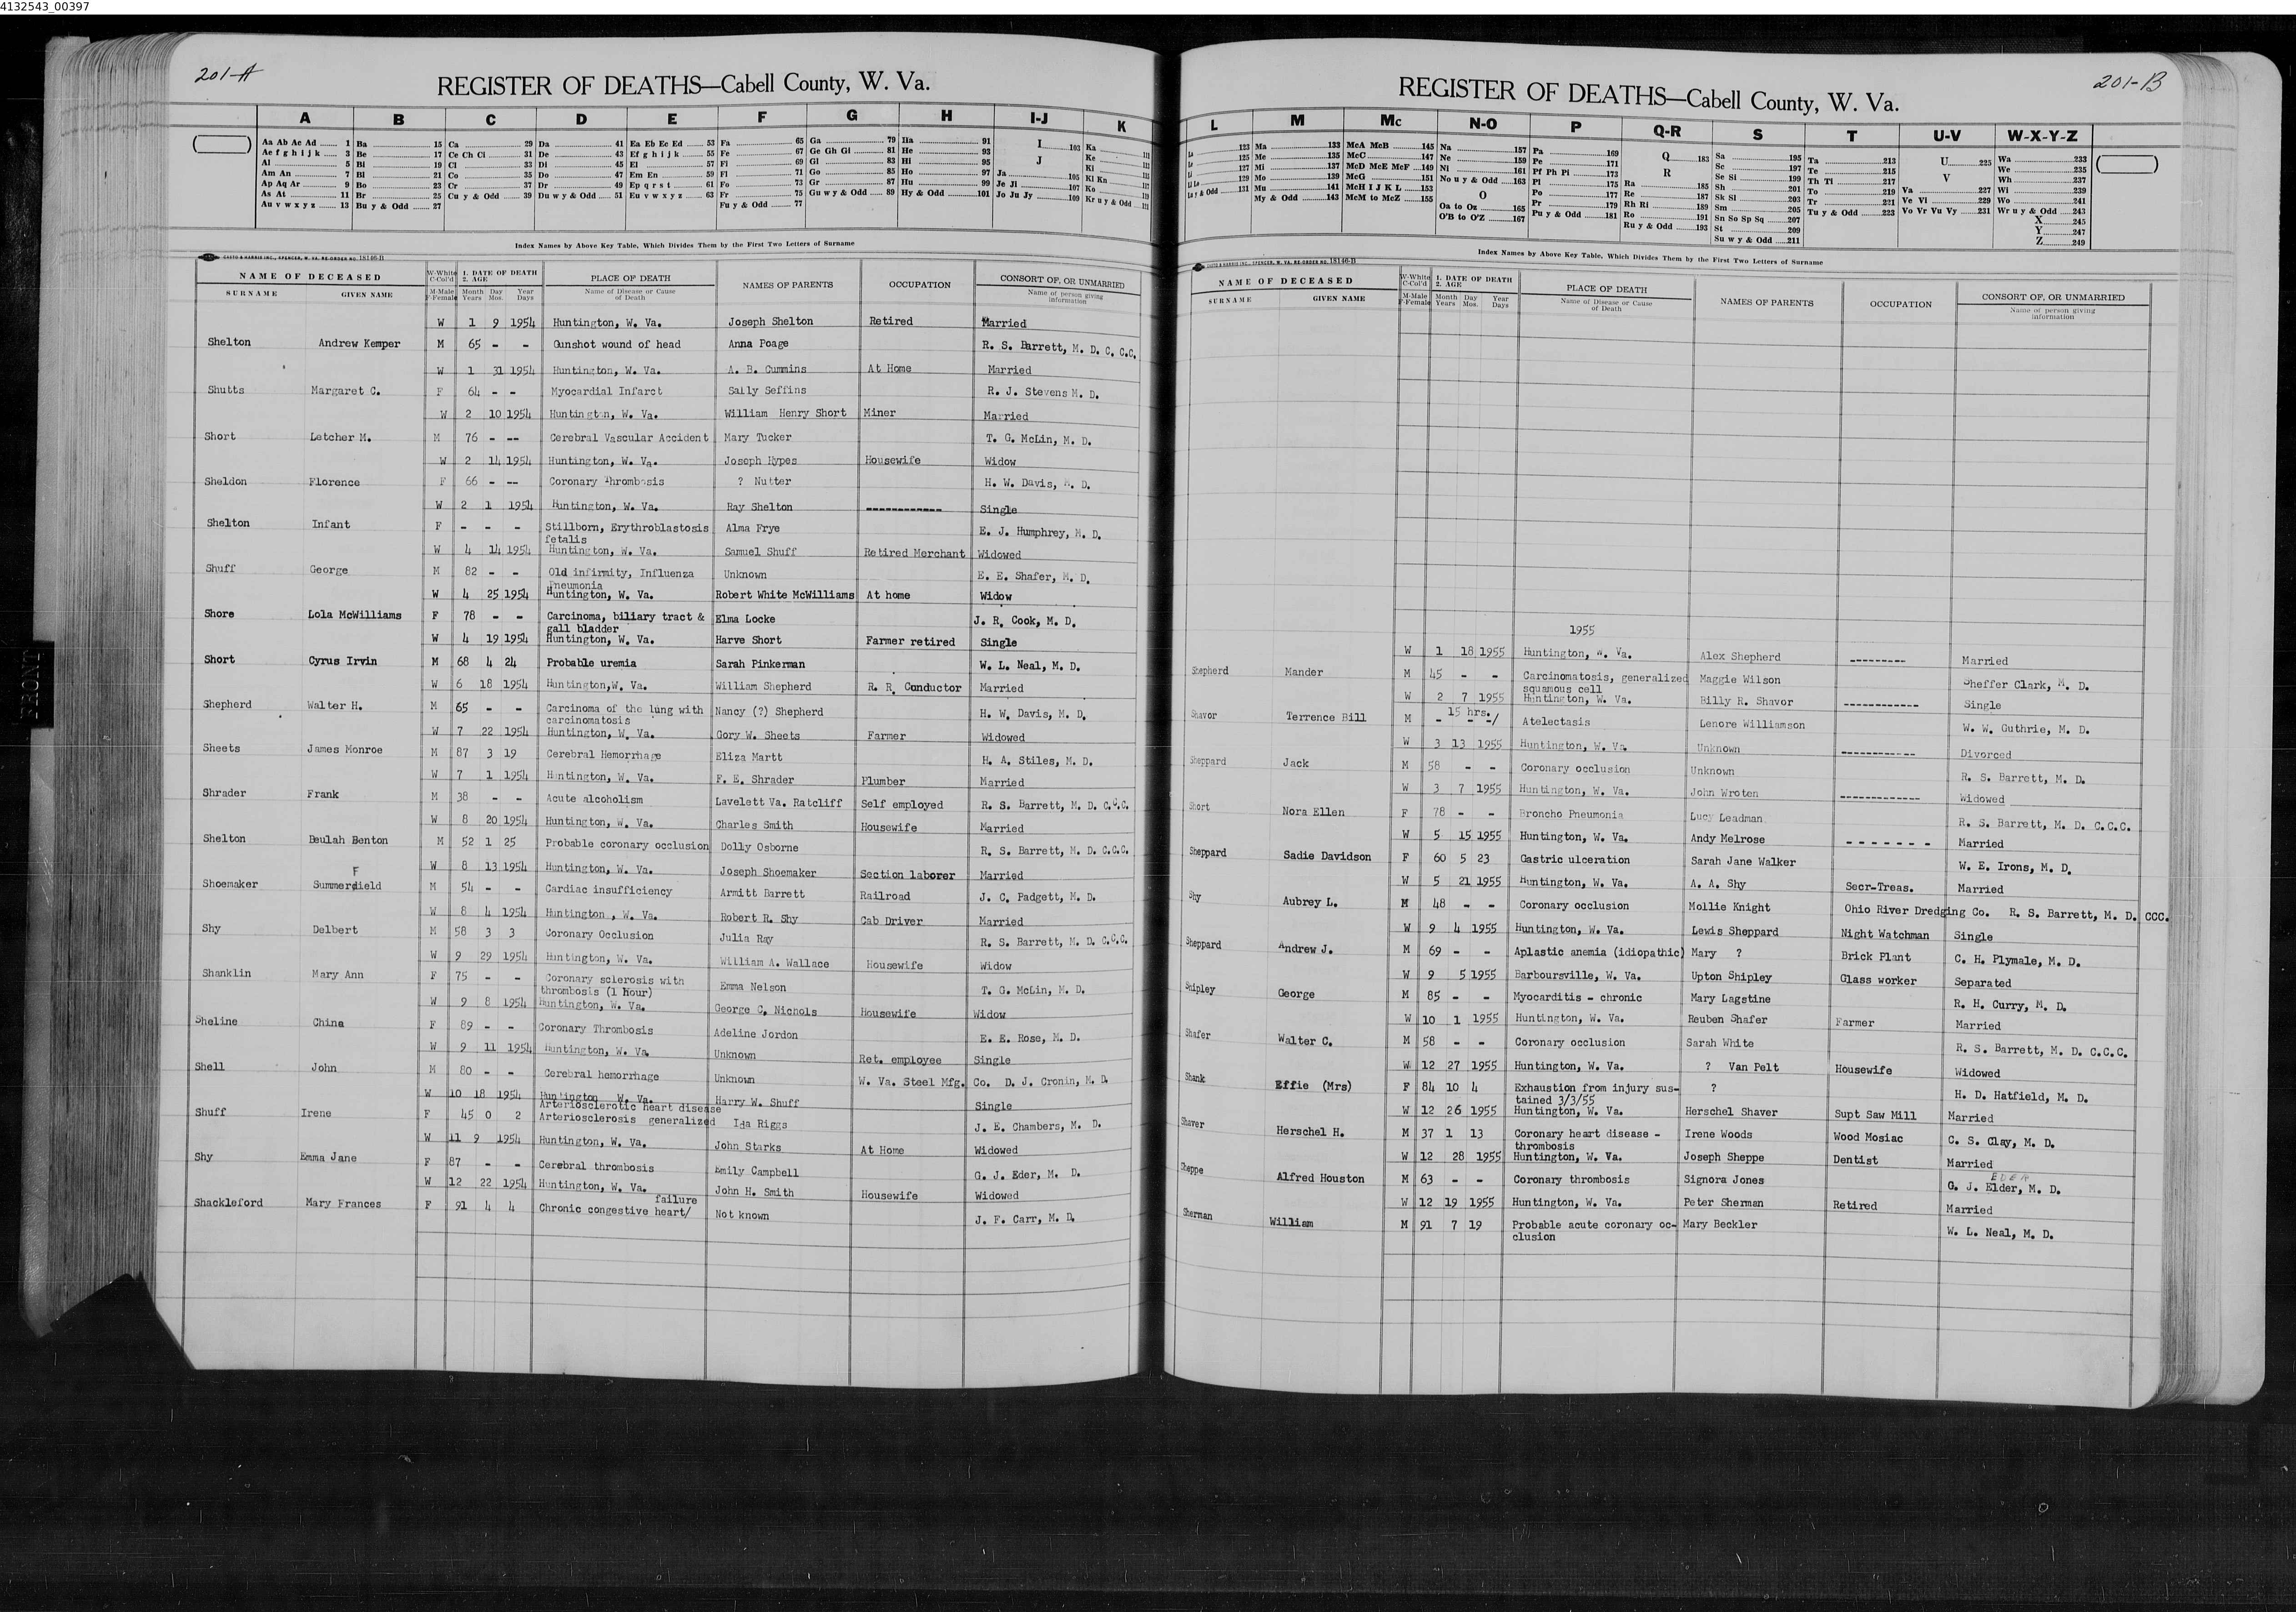 4132543_00397
201-A
REGISTER OF DEATHS—Cabell County, W. Va.
A B C D E F G H I-J K
Aa Ab Ac Ad 1 Ba 15 Ca 29 Da 41 Ea Eb Ec Ed 53 Fa 65 Ga 79 Ha 91 I 103 Ka
Ae f g h i j k 3 Be 17 Ce Ch Ci 31 De 43 Ef g h i j k 55 Fe 67 Ge Gh Gi 81 He 93 J Ke
Al 5 Bi 19 Cl 33 Di 45 El 57 Fi 69 Gl 83 Hi 95 Ki
Am An 7 Bl 21 Co 35 Do 47 Em En 59 Fl 71 Go 85 Ho 97 Ja 105 Kl Kn
Ap Aq Ar 9 Bo 23 Cr 37 Dr 49 Ep q r s t 61 Fo 73 Gr 87 Hu 99 Je Ji 107 Ko
As At 11 Br 25 Cu y & Odd 39 Du w y & Odd 51 Eu v w x y z 63 Fr 75 Gu w y & Odd 89 Hy & Odd 101 Jo Ju Jy 109 Kr u y & Odd
Au v w x y z 13 Bu y & Odd 27 Fu y & Odd 77
Index Names by Above Key Table, Which Divides Them by the First Two Letters of Surname
CASTO & HARRIS INC., SPENCER, W. VA. RE-ORDER NO. 18146-B
NAME OF DECEASED W-White C-Col'd 1. DATE OF DEATH 2. AGE PLACE OF DEATH NAMES OF PARENTS OCCUPATION CONSORT OF, OR UNMARRIED
SURNAME GIVEN NAME M-Male F-Female Month Years Day Mos. Year Days Name of Disease or Cause of Death Name of person giving information
W 1 9 1954 Huntington, W. Va. Joseph Shelton Retired Married
Shelton Andrew Kemper M 65 - - Gunshot wound of head Anna Poage R. S. Barrett, M. D. C. C.C.
W 1 31 1954 Huntington, W. Va. A. B. Cummins At Home Married
Shutts Margaret C. F 64 - - Myocardial Infarct Sally Seffins R. J. Stevens M. D.
W 2 10 1954 Huntington, W. Va. William Henry Short Miner Married
Short Letcher M. M 76 - -- Cerebral Vascular Accident Mary Tucker T. G. McLin, M. D.
W 2 14 1954 Huntington, W. Va. Joseph Hypes Housewife Widow
Sheldon Florence F 66 - -- Coronary Thrombosis ? Nutter H. W. Davis, M. D.
W 2 1 1954 Huntington, W. Va. Ray Shelton ------------ Single
Shelton Infant F - - - Stillborn, Erythroblastosis Alma Frye E. J. Humphrey, M. D.
fetalis
W 4 14 1954 Huntington, W. Va. Samuel Shuff Retired Merchant Widowed
Shuff George M 82 - - Old infirmity, Influenza Unknown E. E. Shafer, M. D.
Pneumonia
W 4 25 1954 Huntington, W. Va. Robert White McWilliams At home Widow
Shore Lola McWilliams F 78 - - Carcinoma, biliary tract & Elma Locke J. R. Cook, M. D.
gall bladder
W 4 19 1954 Huntington, W. Va. Harve Short Farmer retired Single
Short Cyrus Irvin M 68 4 24 Probable uremia Sarah Pinkerman W. L. Neal, M. D.
W 6 18 1954 Huntington,W. Va. William Shepherd R. R. Conductor Married
Shepherd Walter H. M 65 - - Carcinoma of the lung with Nancy (?) Shepherd H. W. Davis, M. D.
carcinomatosis
W 7 22 1954 Huntington, W. Va. Gory W. Sheets Farmer Widowed
Sheets James Monroe M 87 3 19 Cerebral Hemorrhage Eliza Martt H. A. Stiles, M. D.
W 7 1 1954 Huntington, W. Va. F. E. Shrader Plumber Married
Shrader Frank M 38 - - Acute alcoholism Lavelett Va. Ratcliff Self employed R. S. Barrett, M. D. C.C.C.
W 8 20 1954 Huntington, W. Va. Charles Smith Housewife Married
Shelton Beulah Benton M 52 1 25 Probable coronary occlusion Dolly Osborne R. S. Barrett, M. D. C.C.C.
W 8 13 1954 Huntington, W. Va. Joseph Shoemaker Section laborer Married
F
Shoemaker Summerfield M 54 - - Cardiac insufficiency Armitt Barrett Railroad J. C. Padgett, M. D.
W 8 4 1954 Huntington, W. Va. Robert R. Shy Cab Driver Married
Shy Delbert M 58 3 3 Coronary Occlusion Julia Ray R. S. Barrett, M. D. C.C.C.
W 9 29 1954 Huntington, W. Va. William A. Wallace Housewife Widow
Shanklin Mary Ann F 75 - - Coronary sclerosis with Emma Nelson T. G. McLin, M. D.
thrombosis (1 hour)
W 9 8 1954 Huntington, W. Va. George C. Nichols Housewife Widow
Sheline China F 89 - - Coronary Thrombosis Adeline Jordon E. E. Rose, M. D.
W 9 11 1954 Huntington, W. Va. Unknown Ret. employee Single
Shell John M 80 - - Cerebral hemorrhage Unknown W. Va. Steel Mfg. Co. D. J. Cronin, M. D.
W 10 18 1954 Huntington W. Va. Harry W. Shuff Single
Arteriosclerotic heart disease
Shuff Irene F 45 0 2 Arteriosclerosis generalized Ida Riggs J. E. Chambers, M. D.
W 11 9 1954 Huntington, W. Va. John Starks At Home Widowed
Shy Emma Jane F 87 - - Cerebral thrombosis Emily Campbell G. J. Eder, M. D.
W 12 22 1954 Huntington, W. Va. John H. Smith Housewife Widowed
failure
Shackleford Mary Frances F 91 4 4 Chronic congestive heart/ Not known J. F. Carr, M. D.
201-B
REGISTER OF DEATHS—Cabell County, W. Va.
L M Mc N-O P Q-R S T U-V W-X-Y-Z
La 123 Ma 133 McA McB 145 Na 157 Pa 169 Q 183 Sa 195 Ta 213 U 225 Wa 233
Le 125 Me 135 McC 147 Ne 159 Pe 171 R Se 197 Te 215 V We 235
Li 127 Mi 137 McD McE McF 149 Ni 161 Pf Ph Pi 173 Ra 185 Se Si 199 Th Ti 217 Va 227 Wh 237
129 Mo 139 McG 151 No u y & Odd 163 Pl 175 Re 187 Sh 201 To 219 Ve Vi 229 Wi 239
Lu y & Odd 131 Mu 141 McH I J K L 153 O Po 177 Rh Ri 189 Sk Sl 203 Tr 221 Vo Vr Vu Vy 231 Wo 241
My & Odd 143 McM to McZ 155 Oa to Oz 165 Pr 179 Ro 191 Sm 205 Tu y & Odd 223 Wr u y & Odd 243
O'B to O'Z 167 Pu y & Odd 181 Ru y & Odd 193 Sn So Sp Sq 207 X 245
St 209 Y 247
Su w y & Odd 211 Z 249
Index Names by Above Key Table, Which Divides Them by the First Two Letters of Surname
CASTO & HARRIS INC., SPENCER, W. VA. RE-ORDER NO. 18146-B
NAME OF DECEASED W-White C-Col'd 1. DATE OF DEATH 2. AGE PLACE OF DEATH NAMES OF PARENTS OCCUPATION CONSORT OF, OR UNMARRIED
SURNAME GIVEN NAME M-Male F-Female Month Years Day Mos. Year Days Name of Disease or Cause of Death Name of person giving information
1955
W 1 18 1955 Huntington, W. Va. Alex Shepherd --------- Married
Shepherd Mander M 45 - - Carcinomatosis, generalized Maggie Wilson Sheffer Clark, M. D.
squamous cell
W 2 7 1955 Huntington, W. Va. Billy R. Shavor ------------ Single
15 hrs.
Shavor Terrence Bill M - - -/ Atelectasis Lenore Williamson W. W. Guthrie, M. D.
W 3 13 1955 Huntington, W. Va. Unknown ------------ Divorced
Sheppard Jack M 58 - - Coronary occlusion Unknown R. S. Barrett, M. D.
W 3 7 1955 Huntington, W. Va. John Wroten ------------- Widowed
Short Nora Ellen F 78 - - Broncho Pneumonia Lucy Leadman R. S. Barrett, M. D. C.C.C.
W 5 15 1955 Huntington, W. Va. Andy Melrose - - - - - - - Married
Sheppard Sadie Davidson F 60 5 23 Gastric ulceration Sarah Jane Walker W. E. Irons, M. D.
W 5 21 1955 Huntington, W. Va. A. A. Shy Secr-Treas. Married
Shy Aubrey L. M 48 - - Coronary occlusion Mollie Knight Ohio River Dredging Co. R. S. Barrett, M. D. CCC.
W 9 4 1955 Huntington, W. Va. Lewis Sheppard Night Watchman Single
Sheppard Andrew J. M 69 - - Aplastic anemia (idiopathic) Mary ? Brick Plant C. H. Plymale, M. D.
W 9 5 1955 Barboursville, W. Va. Upton Shipley Glass worker Separated
Shipley George M 85 - - Myocarditis - chronic Mary Lagstine R. H. Curry, M. D.
W 10 1 1955 Huntington, W. Va. Reuben Shafer Farmer Married
Shafer Walter C. M 58 - - Coronary occlusion Sarah White R. S. Barrett, M. D. C.C.C.
W 12 27 1955 Huntington, W. Va. ? Van Pelt Housewife Widowed
Shank Effie (Mrs) F 84 10 4 Exhaustion from injury sus- ? H. D. Hatfield, M. D.
tained 3/3/55
W 12 26 1955 Huntington, W. Va. Herschel Shaver Supt Saw Mill Married
Shaver Herschel H. M 37 1 13 Coronary heart disease - Irene Woods Wood Mosiac C. S. Clay, M. D.
thrombosis
W 12 28 1955 Huntington, W. Va. Joseph Sheppe Dentist Married
EDER
Sheppe Alfred Houston M 63 - - Coronary thrombosis Signora Jones G. J. Elder, M. D.
W 12 19 1955 Huntington, W. Va. Peter Sherman Retired Married
Sherman William M 91 7 19 Probable acute coronary oc- Mary Beckler W. L. Neal, M. D.
clusion
FRONT